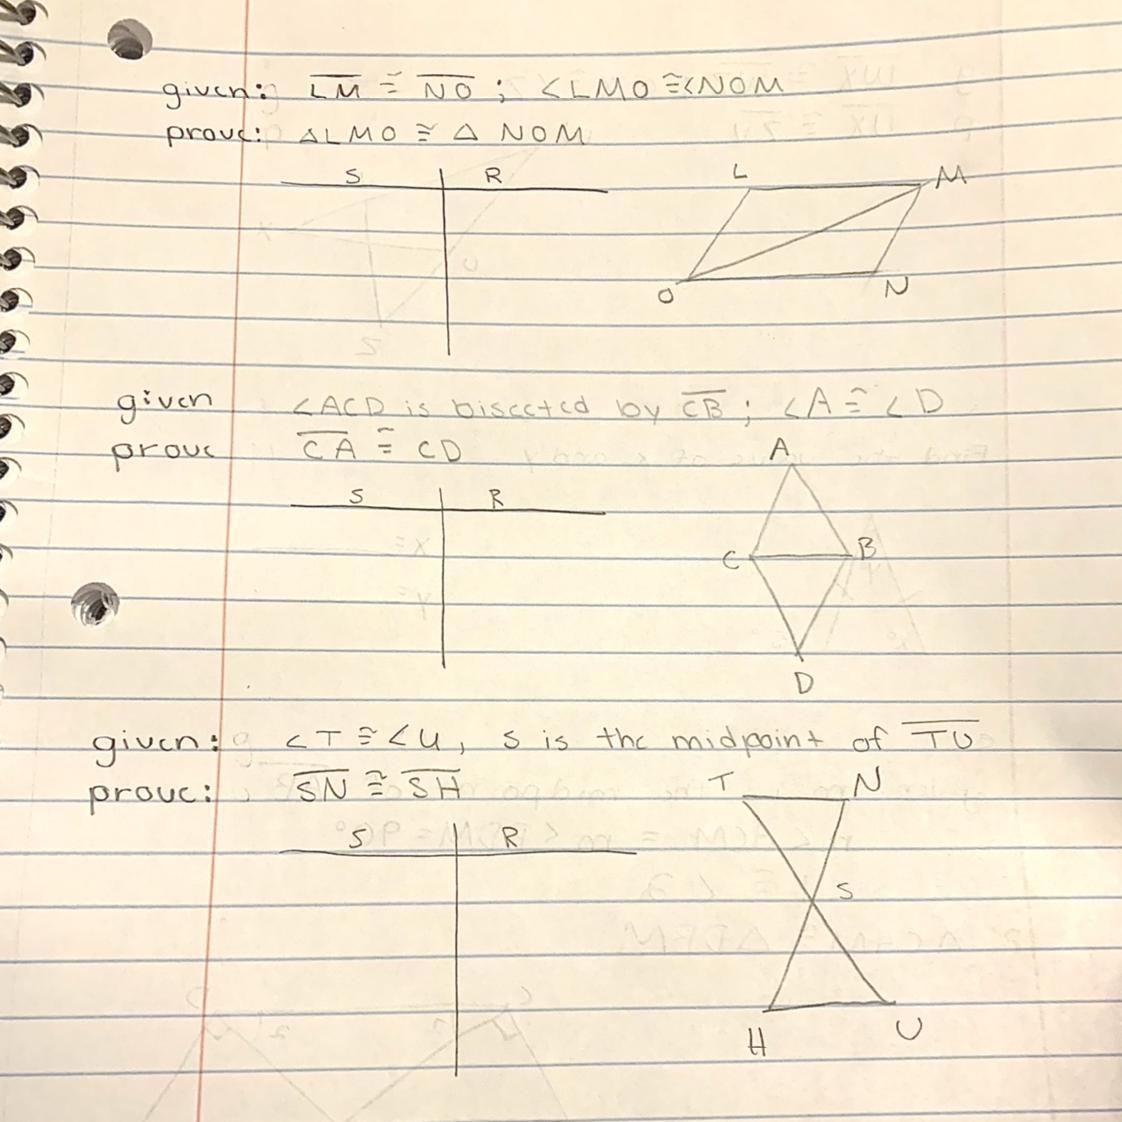 given: L̅M̅ ≅ N̅O̅ ; <LMO ≅ <NOM
prove: △LMO ≅ △ NOM
S R
L M
O N
given <ACD is bisected by C̅B̅ ; <A ≅ <D
prove C̅A̅ ≅ CD
S R
A
C B
D
given: <T ≅ <U, S is the midpoint of T̅U̅
prove: S̅N̅ ≅ S̅H̅
T N
S R
S
H U